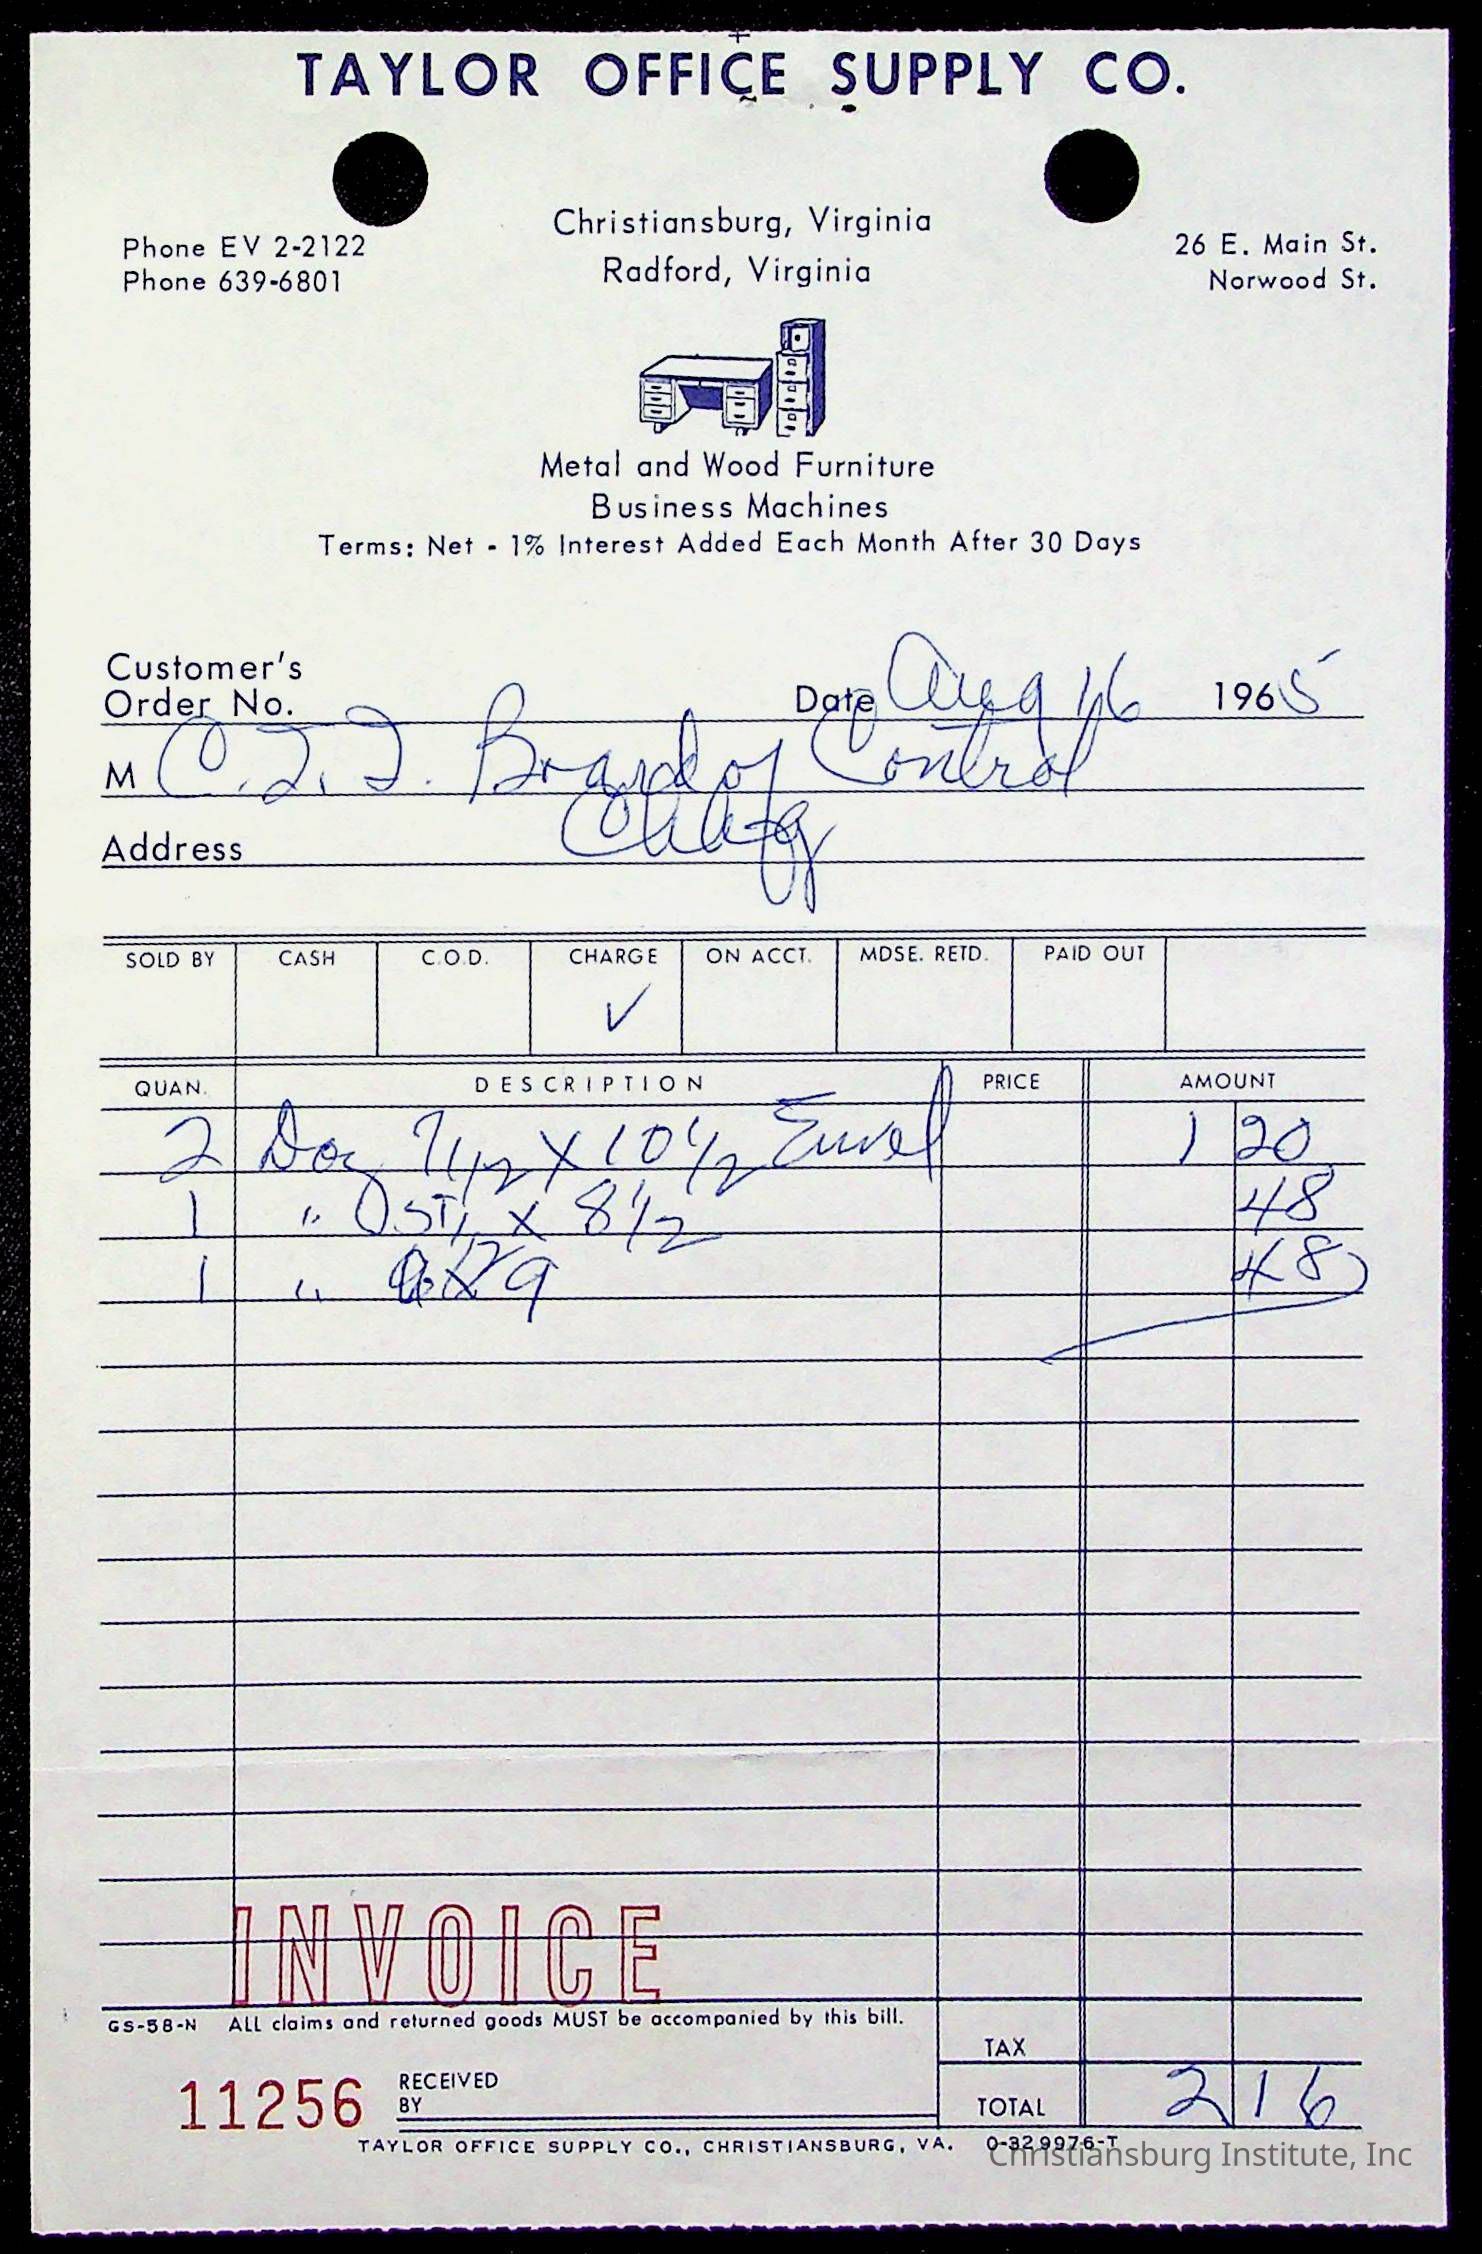 TAYLOR OFFICE SUPPLY CO.
Christiansburg, Virginia
Radford, Virginia
Phone EV 2-2122
Phone 639-6801
26 E. Main St.
Norwood St.
Metal and Wood Furniture
Business Machines
Terms: Net - 1% Interest Added Each Month After 30 Days
Customer's
Order No.
Date Aug 16 1965
M C. I. I. Board of Control
Address
SOLD BY CASH C.O.D. CHARGE ON ACCT. MDSE. RETD. PAID OUT
✓
QUAN. DESCRIPTION PRICE AMOUNT
2 Doz 7 1/2 X 10 1/2 Envel 1 20
1 " 5 1/2 X 8 1/2 48
1 " 6 X 9 48
INVOICE
GS-58-N ALL claims and returned goods MUST be accompanied by this bill.
TAX
11256 RECEIVED BY
TOTAL 2 16
TAYLOR OFFICE SUPPLY CO., CHRISTIANSBURG, VA. O-329976-T
Christiansburg Institute, Inc